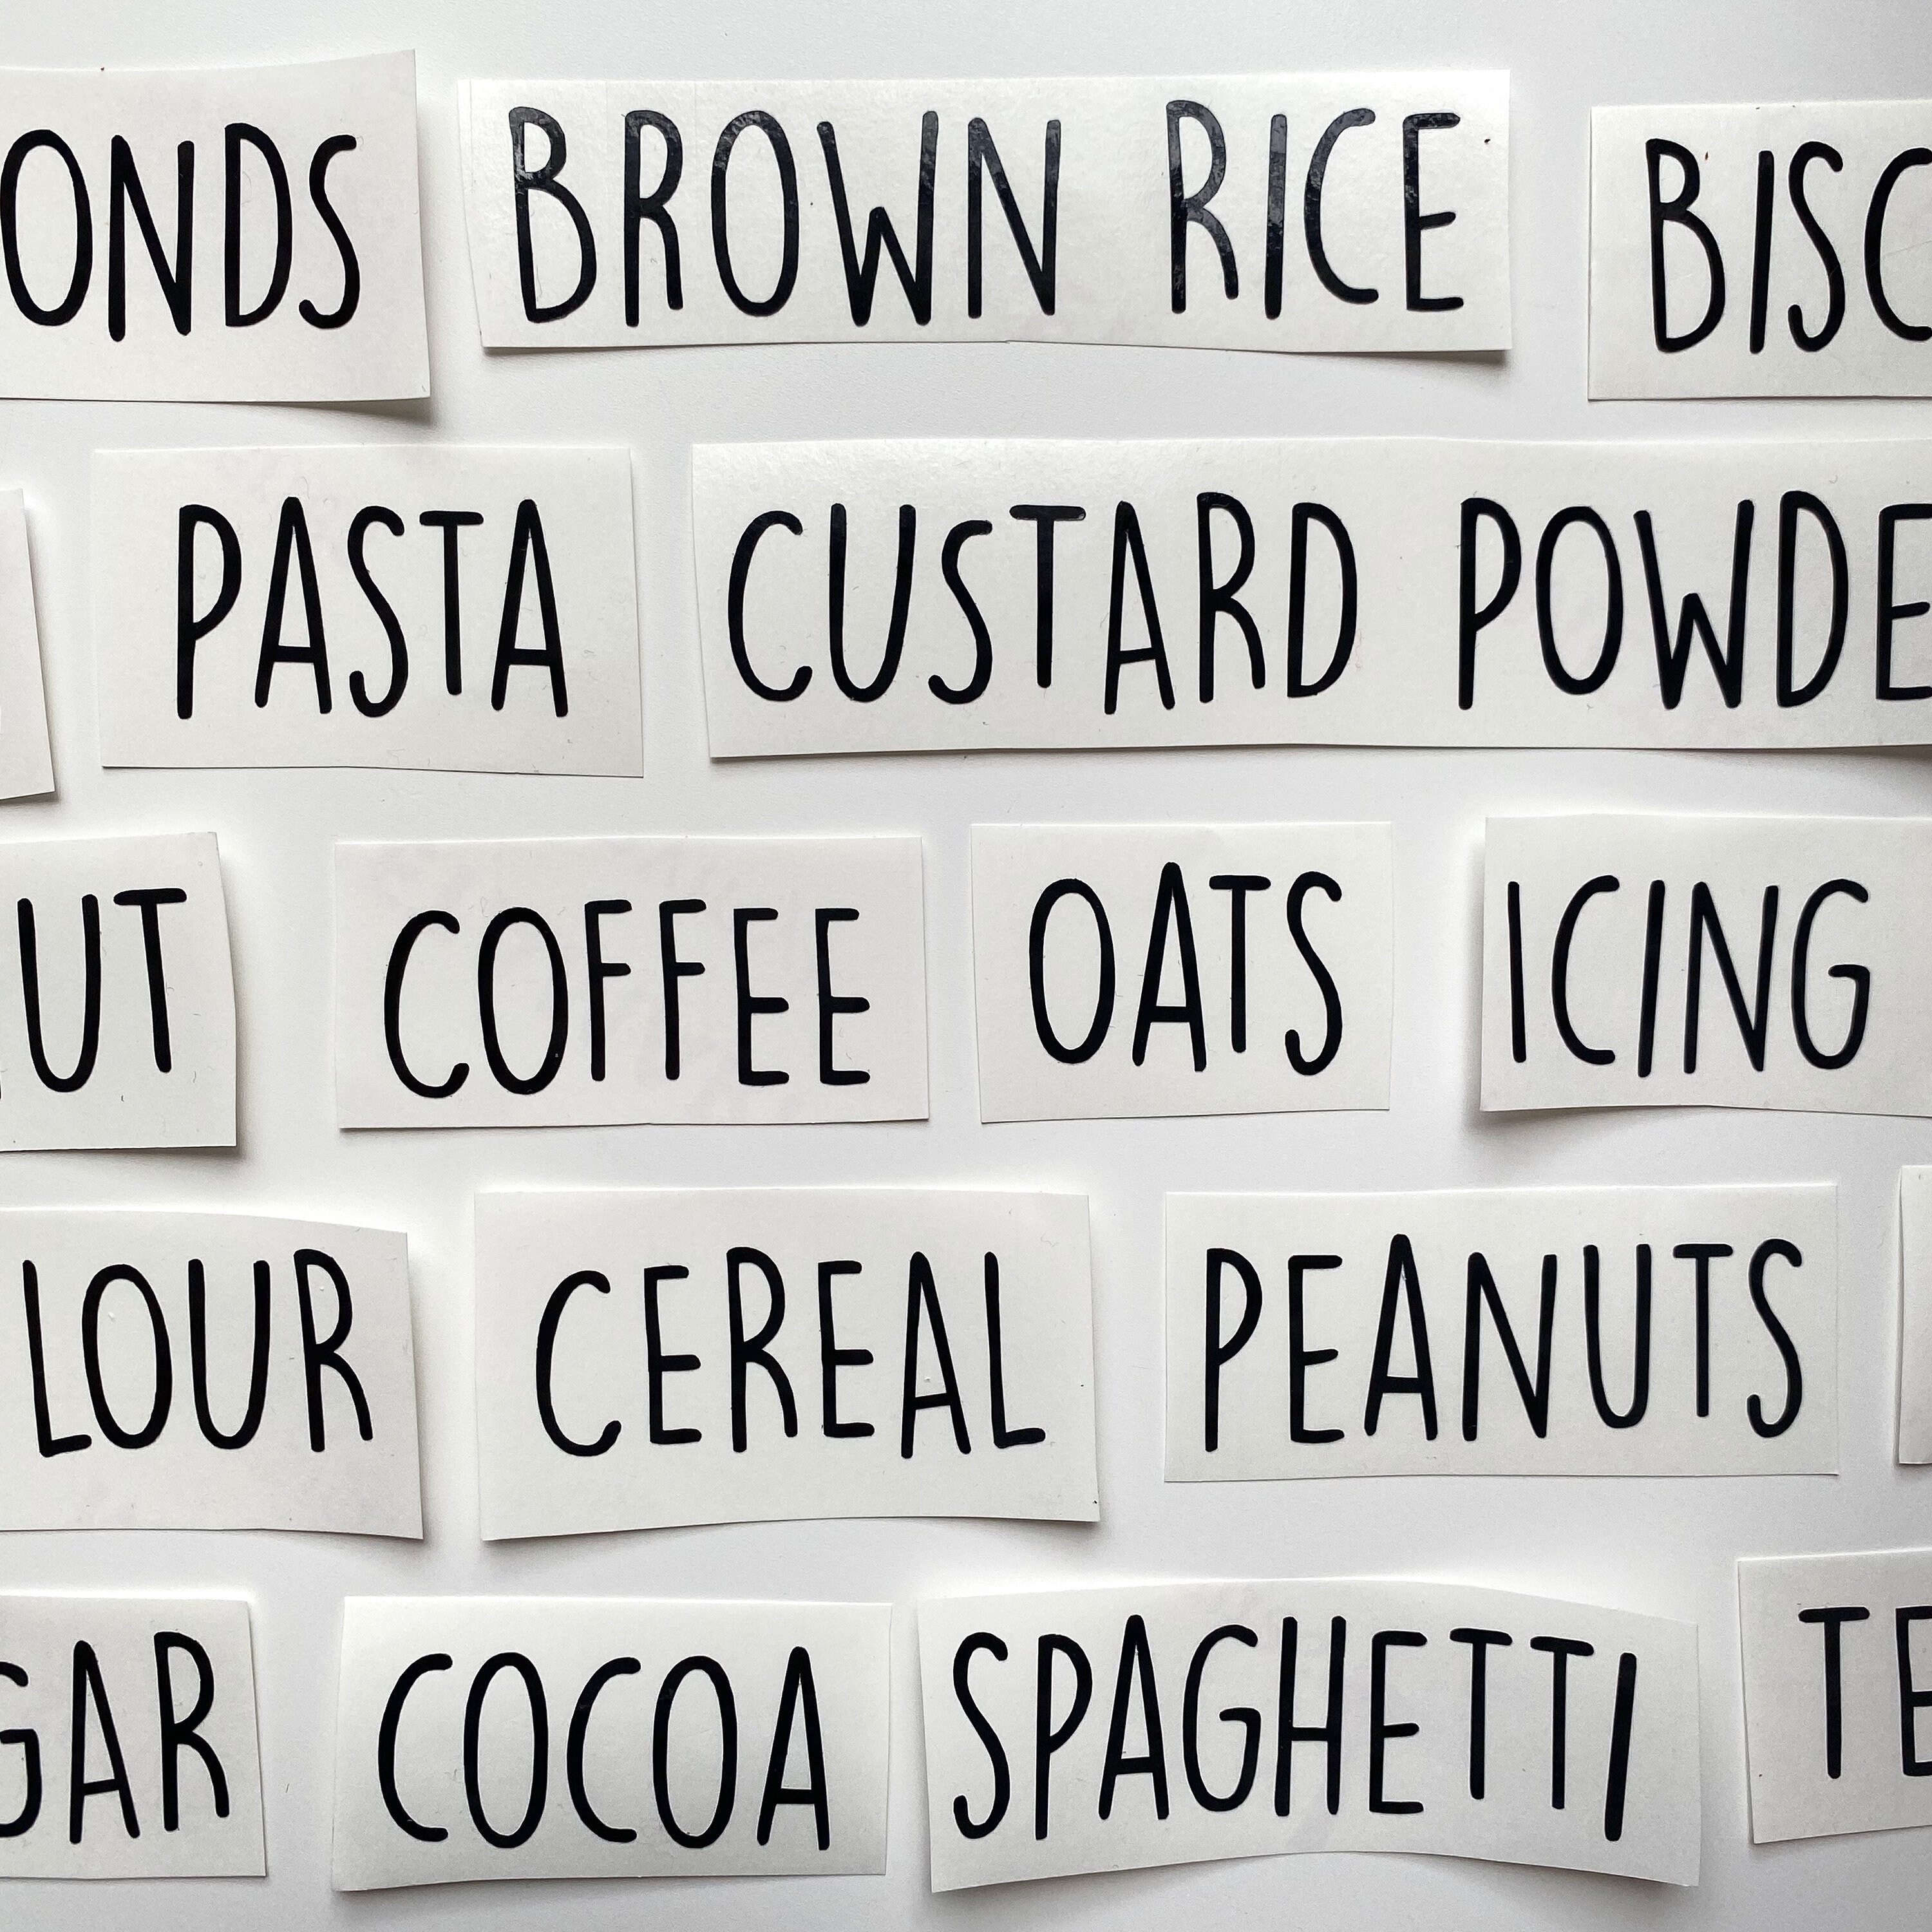 ONDS BROWN RICE BISC
PASTA CUSTARD POWDE
UT COFFEE OATS ICING
LOUR CEREAL PEANUTS
GAR COCOA SPAGHETTI TE